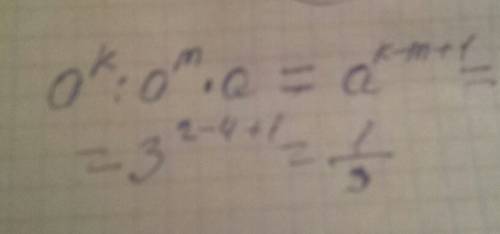 a^k : a^m · a = a^{k-m+1} =
= 3^{2-4+1} = 1/3